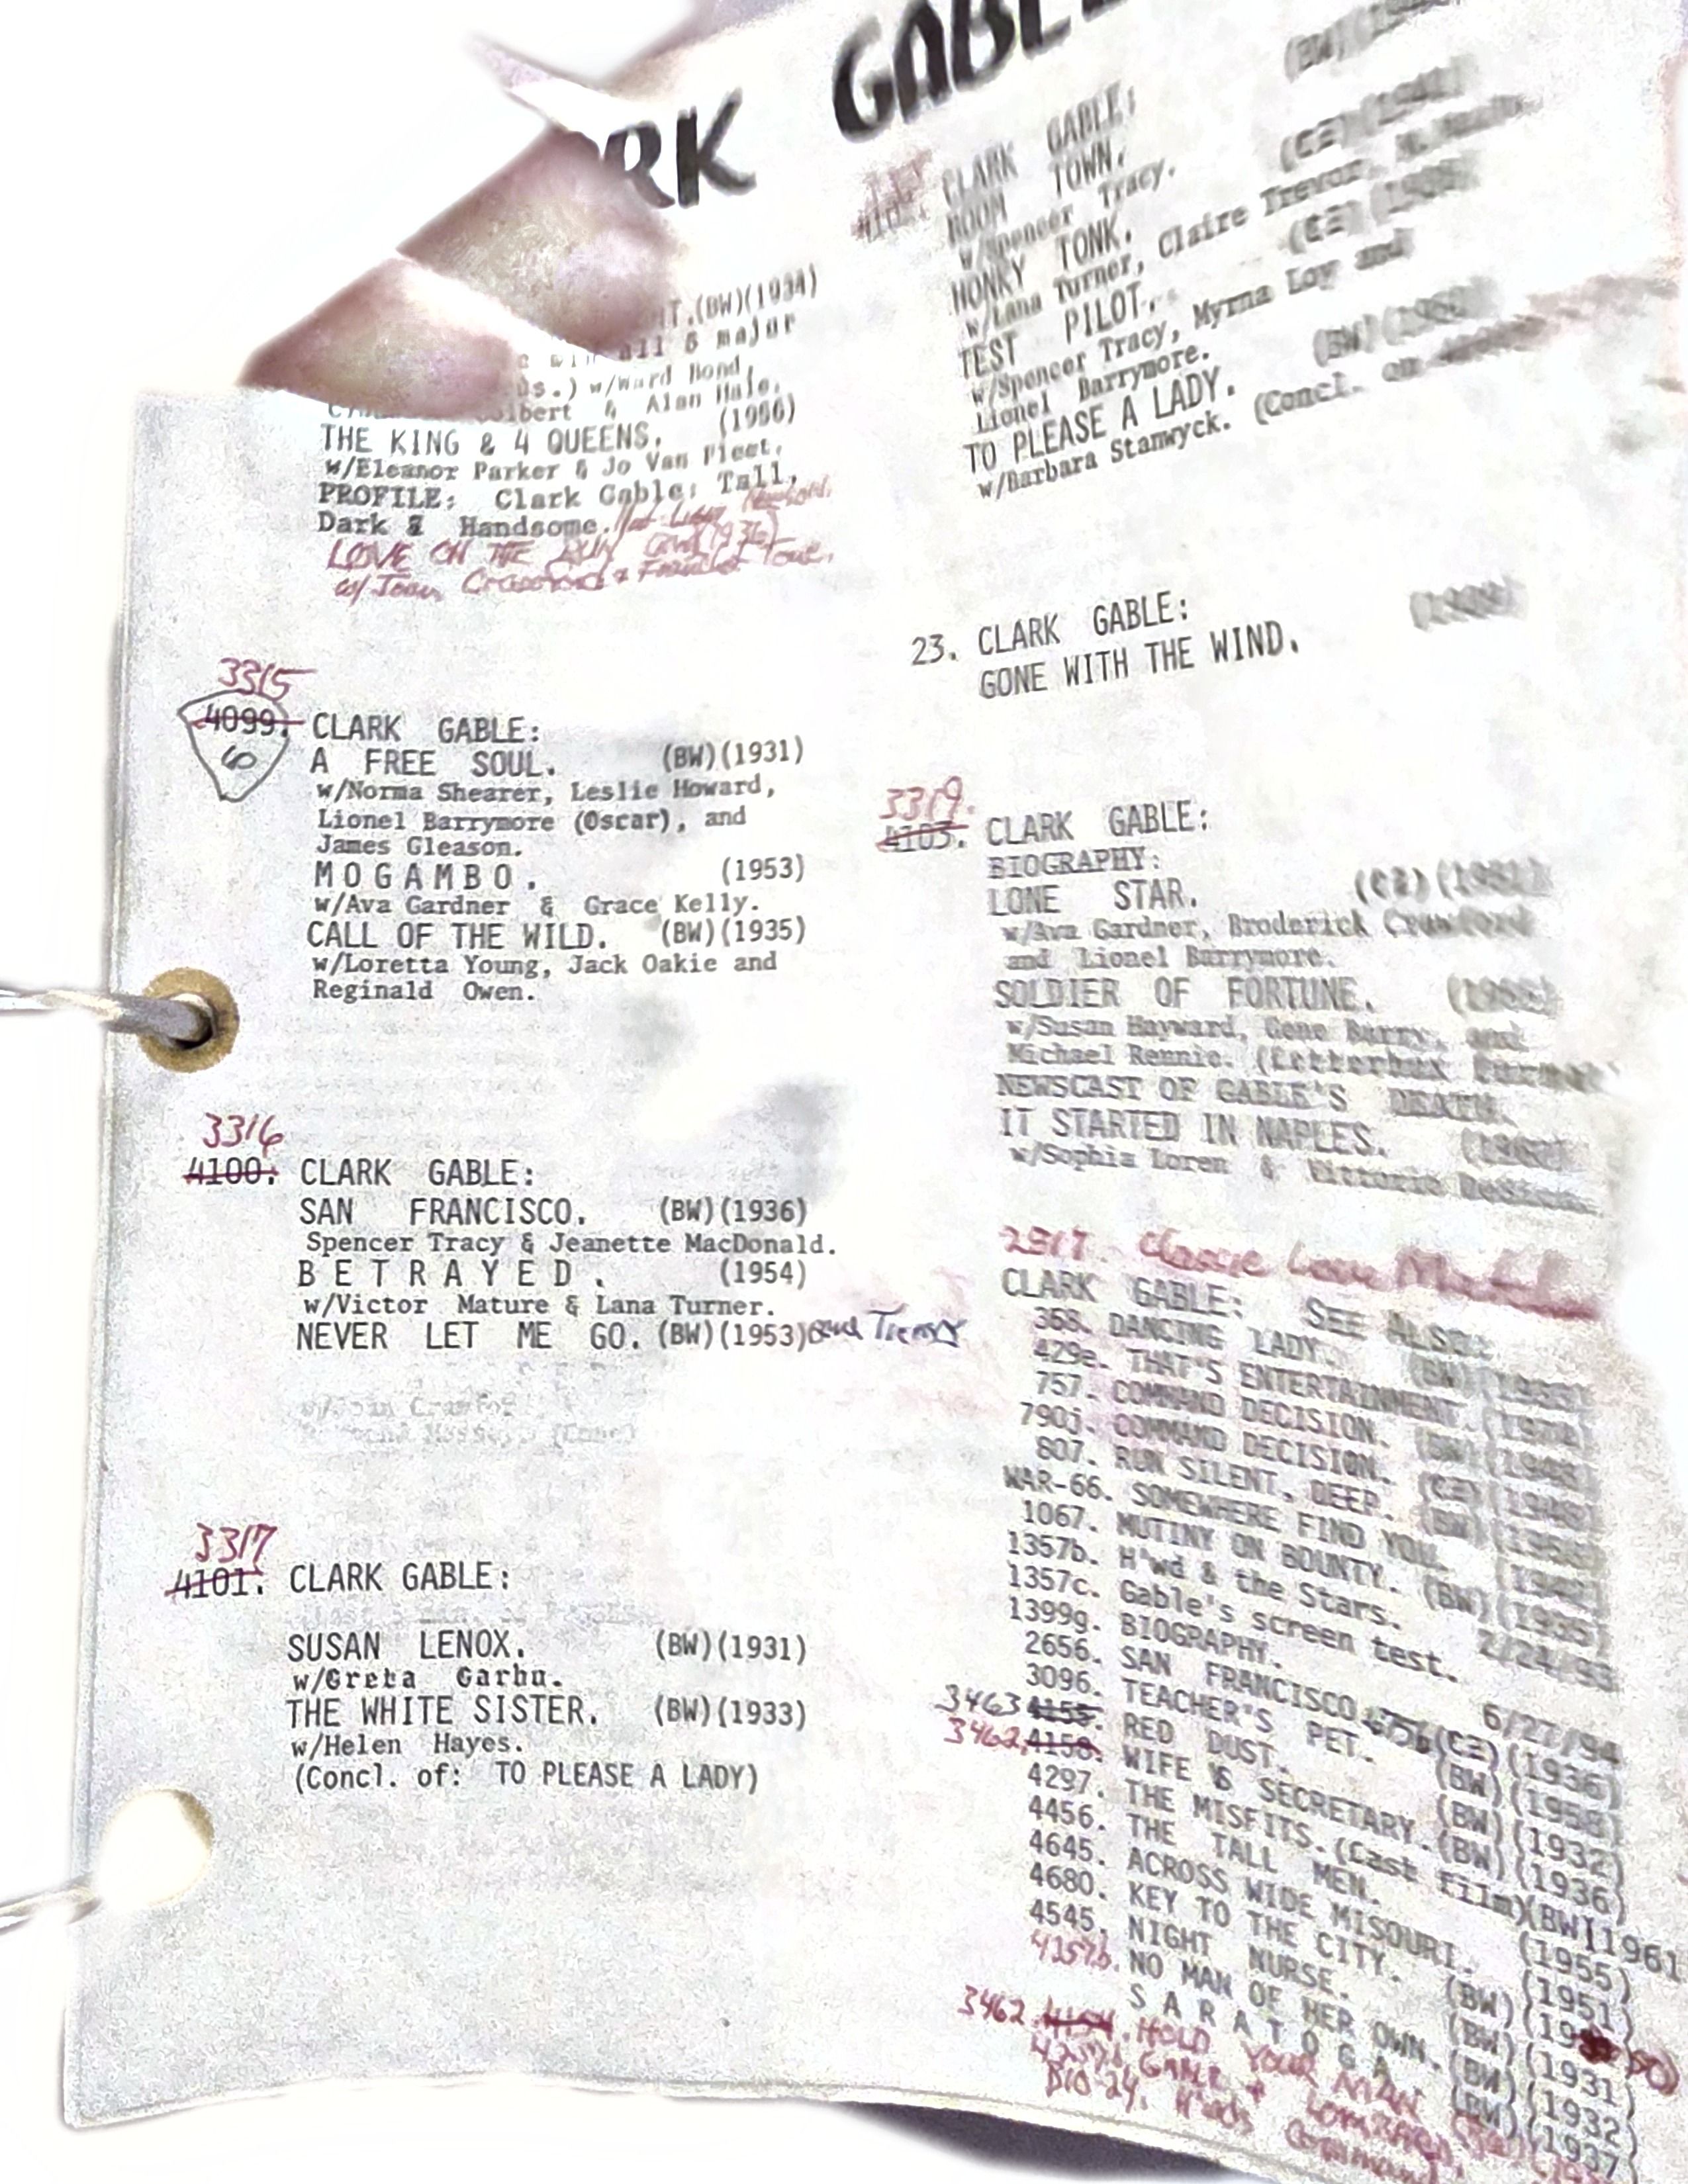 RK GABLE
T.(BW)(1934)
all 6 major
w/Ward Bond,
& Alan Hale.
THE KING & 4 QUEENS. (1956)
w/Eleanor Parker & Jo Van Fleet.
PROFILE: Clark Gable: Tall,
Dark & Handsome.
LOVE ON THE RUN (1936)
w/Joan Crawford & Franchot Tone.
3315
4099. CLARK GABLE:
6
A FREE SOUL. (BW)(1931)
w/Norma Shearer, Leslie Howard,
Lionel Barrymore (Oscar), and
James Gleason.
MOGAMBO. (1953)
w/Ava Gardner & Grace Kelly.
CALL OF THE WILD. (BW)(1935)
w/Loretta Young, Jack Oakie and
Reginald Owen.
3316
4100. CLARK GABLE:
SAN FRANCISCO. (BW)(1936)
Spencer Tracy & Jeanette MacDonald.
BETRAYED. (1954)
w/Victor Mature & Lana Turner.
NEVER LET ME GO. (BW)(1953) Tierney
3317
4101. CLARK GABLE:
SUSAN LENOX. (BW)(1931)
w/Greta Garbo.
THE WHITE SISTER. (BW)(1933)
w/Helen Hayes.
(Concl. of: TO PLEASE A LADY)
CLARK GABLE:
BOOM TOWN.
w/Spencer Tracy.
HONKY TONK.
w/Lana Turner, Claire Trevor,
TEST PILOT.
w/Spencer Tracy, Myrna Loy and
Lionel Barrymore.
TO PLEASE A LADY.
w/Barbara Stanwyck. (Concl. on
23. CLARK GABLE:
GONE WITH THE WIND.
3319.
4103. CLARK GABLE:
BIOGRAPHY:
LONE STAR.
w/Ava Gardner, Broderick Crawford
and Lionel Barrymore.
SOLDIER OF FORTUNE.
w/Susan Hayward, Gene Barry, and
Michael Rennie. (Letterbox
NEWSCAST OF GABLE'S DEATH.
IT STARTED IN NAPLES.
w/Sophia Loren & Vittorio DeSica.
CLARK GABLE: SEE ALSO:
368. DANCING LADY. (BW)(1933)
429e. THAT'S ENTERTAINMENT. (1974)
757. COMMAND DECISION. (BW)(1948)
790j. COMMAND DECISION. (CZ)(1948)
807. RUN SILENT, DEEP. (BW)(1958)
WAR-66. SOMEWHERE FIND YOU. (1942)
1067. MUTINY ON BOUNTY. (BW)(1935)
1357b. H'wd & the Stars. 2/24/93
1357c. Gable's screen test.
1399g. BIOGRAPHY. 6/27/94
2656. SAN FRANCISCO. (CZ)(1936)
3096. TEACHER'S PET. (BW)(1958)
3463 4155. RED DUST. (BW)(1932)
3462. 4158. WIFE VS SECRETARY. (BW)(1936)
4297. THE MISFITS. (Last film)(BW)(1961
4456. THE TALL MEN. (1955)
4645. ACROSS WIDE MISOURI. (1951)
4680. KEY TO THE CITY. (BW)(19 50)
4545. NIGHT NURSE. (BW)(1931)
4157b. NO MAN OF HER OWN. (BW)(1932)
SARATOGA. (BW)(1937
3462 HOLD YOUR MAN
GABLE & LOMBARD
BIO-24.